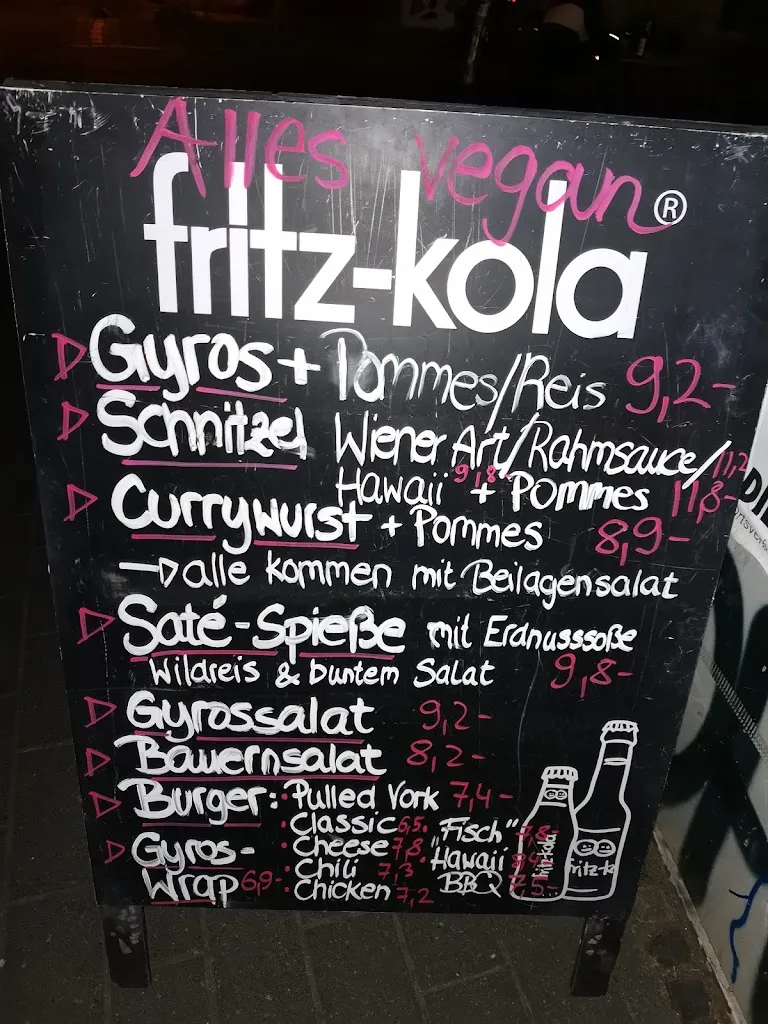 Alles vegan
fritz-kola®
Gyros + Pommes/Reis 9,2-
Schnitzel Wiener Art/Rahmsauce/ 11,2
Hawaii 9,8 + Pommes 11,8-
Currywurst + Pommes 8,9-
alle kommen mit Beilagensalat
Saté-Spieße mit Erdnusssoße
Wildreis & buntem Salat 9,8-
Gyrossalat 9,2-
Bauernsalat 8,2-
Burger: Pulled Vork 7,4-
Classic 6,5. "Fisch" 7,8-
Gyros- Cheese 7,8 "Hawaii
Chili 7,3
Wrap 6,9- Chicken 7,2 BBQ 7,5-
fritz-kola
fritz-k